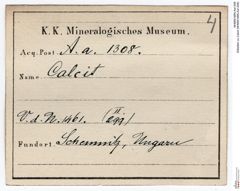 4
K. K. Mineralogisches Museum.
Acq. Post. A. a. 1308.
Name. Calcit
V. d. N. 1461. (II
Fundort. Schemnitz, Ungarn